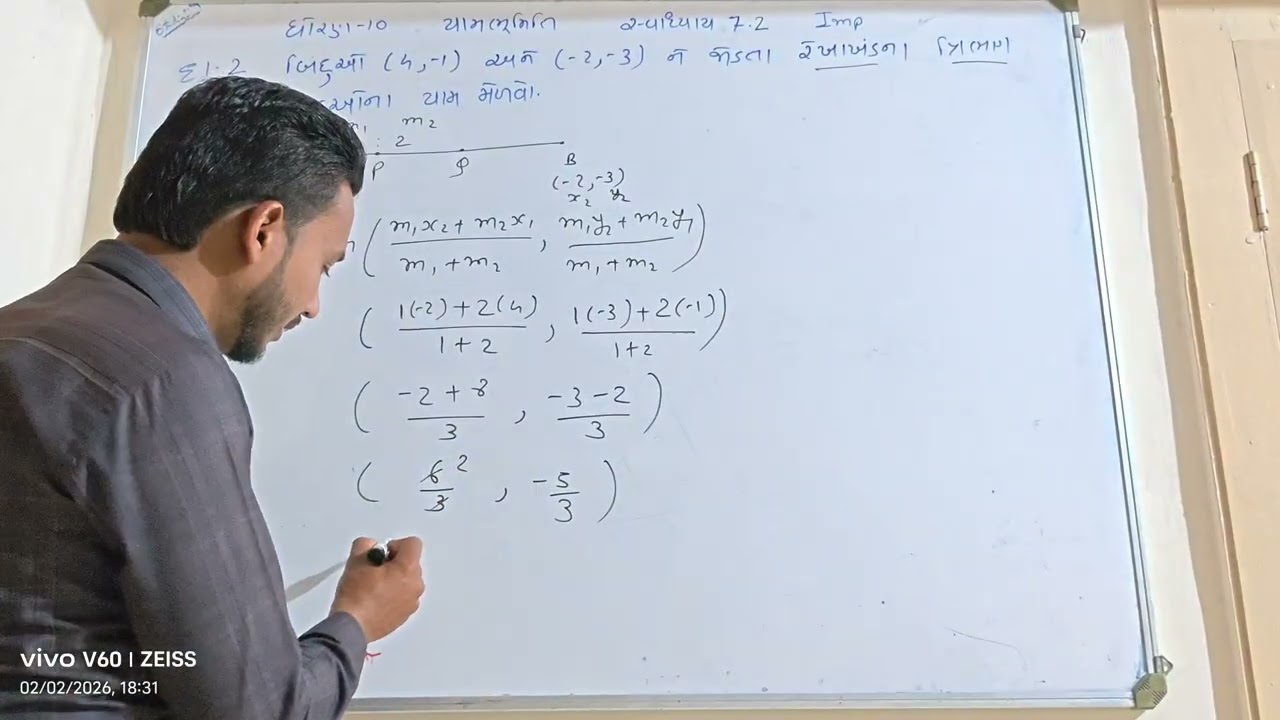 ધોરણ-10 યામભૂમિતિ સ્વાધ્યાય 7.2 Imp
દા.2 બિંદુઓ (4,-1) અને (-2,-3) ને જોડતા રેખાખંડના ત્રિભાગ
યામ મેળવો.
m2
: 2
P Q B
(-2,-3)
x2 y2
( m1x2 + m2x1 / m1 + m2 , m1y2 + m2y1 / m1 + m2 )
( 1(-2) + 2(4) / 1 + 2 , 1(-3) + 2(-1) / 1+2 )
( -2 + 8 / 3 , -3 - 2 / 3 )
( 6 2 / 3 , -5 / 3 )
vivo V60 | ZEISS
02/02/2026, 18:31